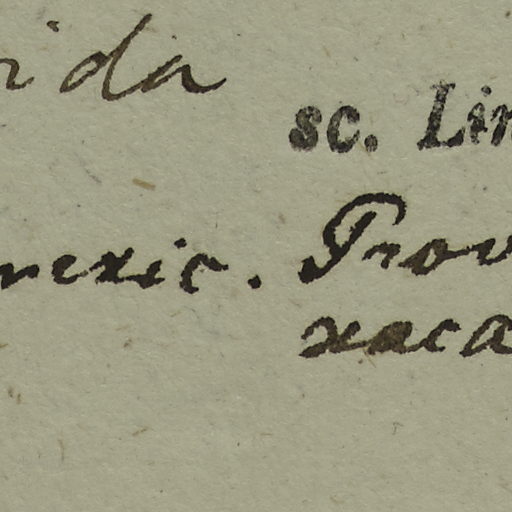 ida
sc. Lin
mexic. Prov
xaca